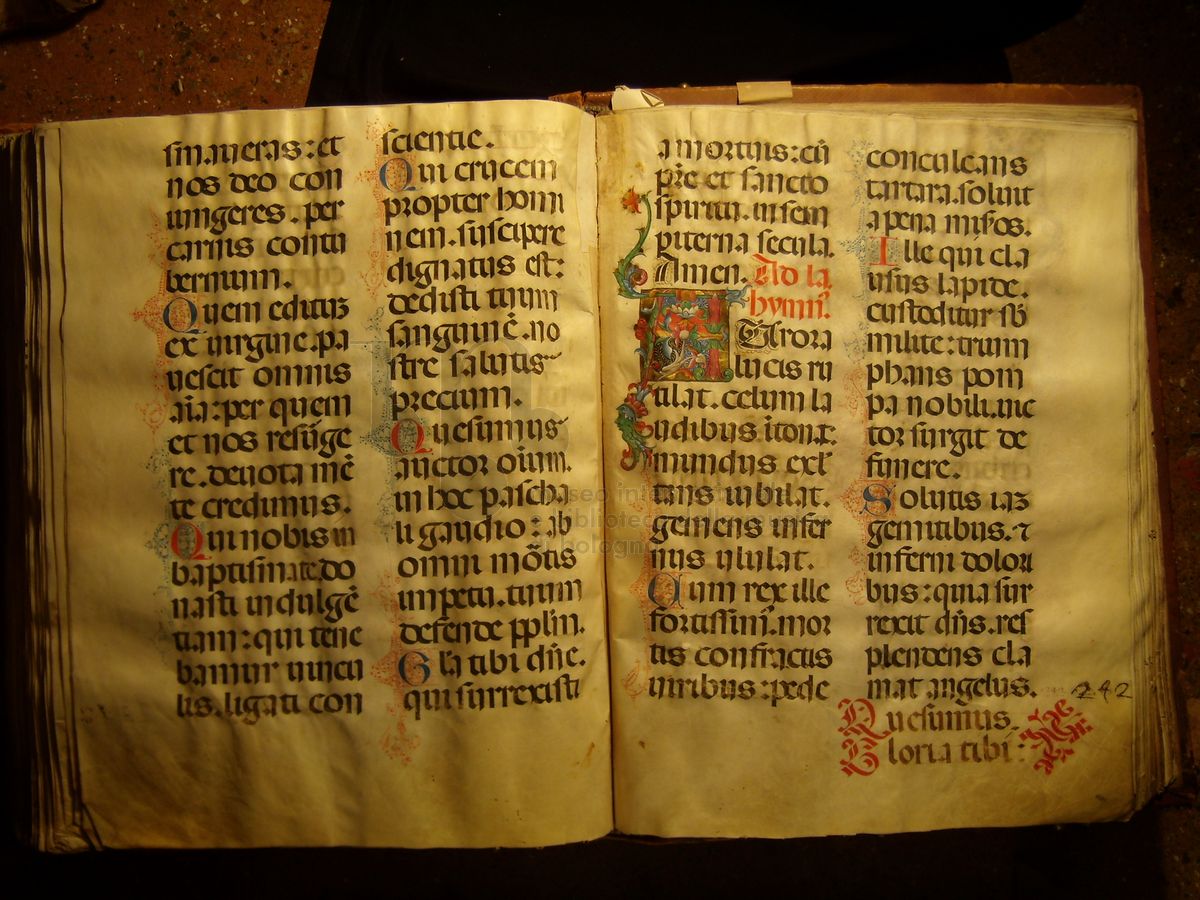 sumeras: et
nos deo con
iungeres. per
carnis contu
bernium.
Quem editum
ex uirgine. pa
uescit omnis
aīa: per quem
et nos resurge
re. deuota mē
te credimus.
Qui nobis in
baptismate. do
nasti indulgē
tiam: qui tene
bamur uincu
lis. ligati con
scientie.
Qui crucem
propter homi
nem. suscipere
dignatus est:
dedisti tuum
sanguinē. no
stre salutis
precium.
Quesumus
auctor oīum.
in hoc pascha
li gaudio: ab
omni mōtis
impetu. tuum
defende pplm.
Gla tibi dñe.
qui surrexisti
a mortuis: cū
pre et sancto
spiritu. in sem
piterna secula.
Amen. Ad la
hymn.
Aurora
lucis ru
tilat. celum la
udibus itonat.
mundus exul
tans iubilat.
gemens infer
nus ululat.
Qum rex ille
fortissim. mor
tis confractis
uiribus: pede
conculcans
tartara. soluit
a pena misos.
Ille qui cla
usus lapide.
custoditur sb
milite: trium
phans pom
pa nobili. uic
tor surgit de
funere.
Solutis iaz
gemitibus. ⁊
inferni dolori
bus: quia sur
rexit dñs. res
plendens cla
mat angelus.
242
Quesumus.
Gloria tibi: